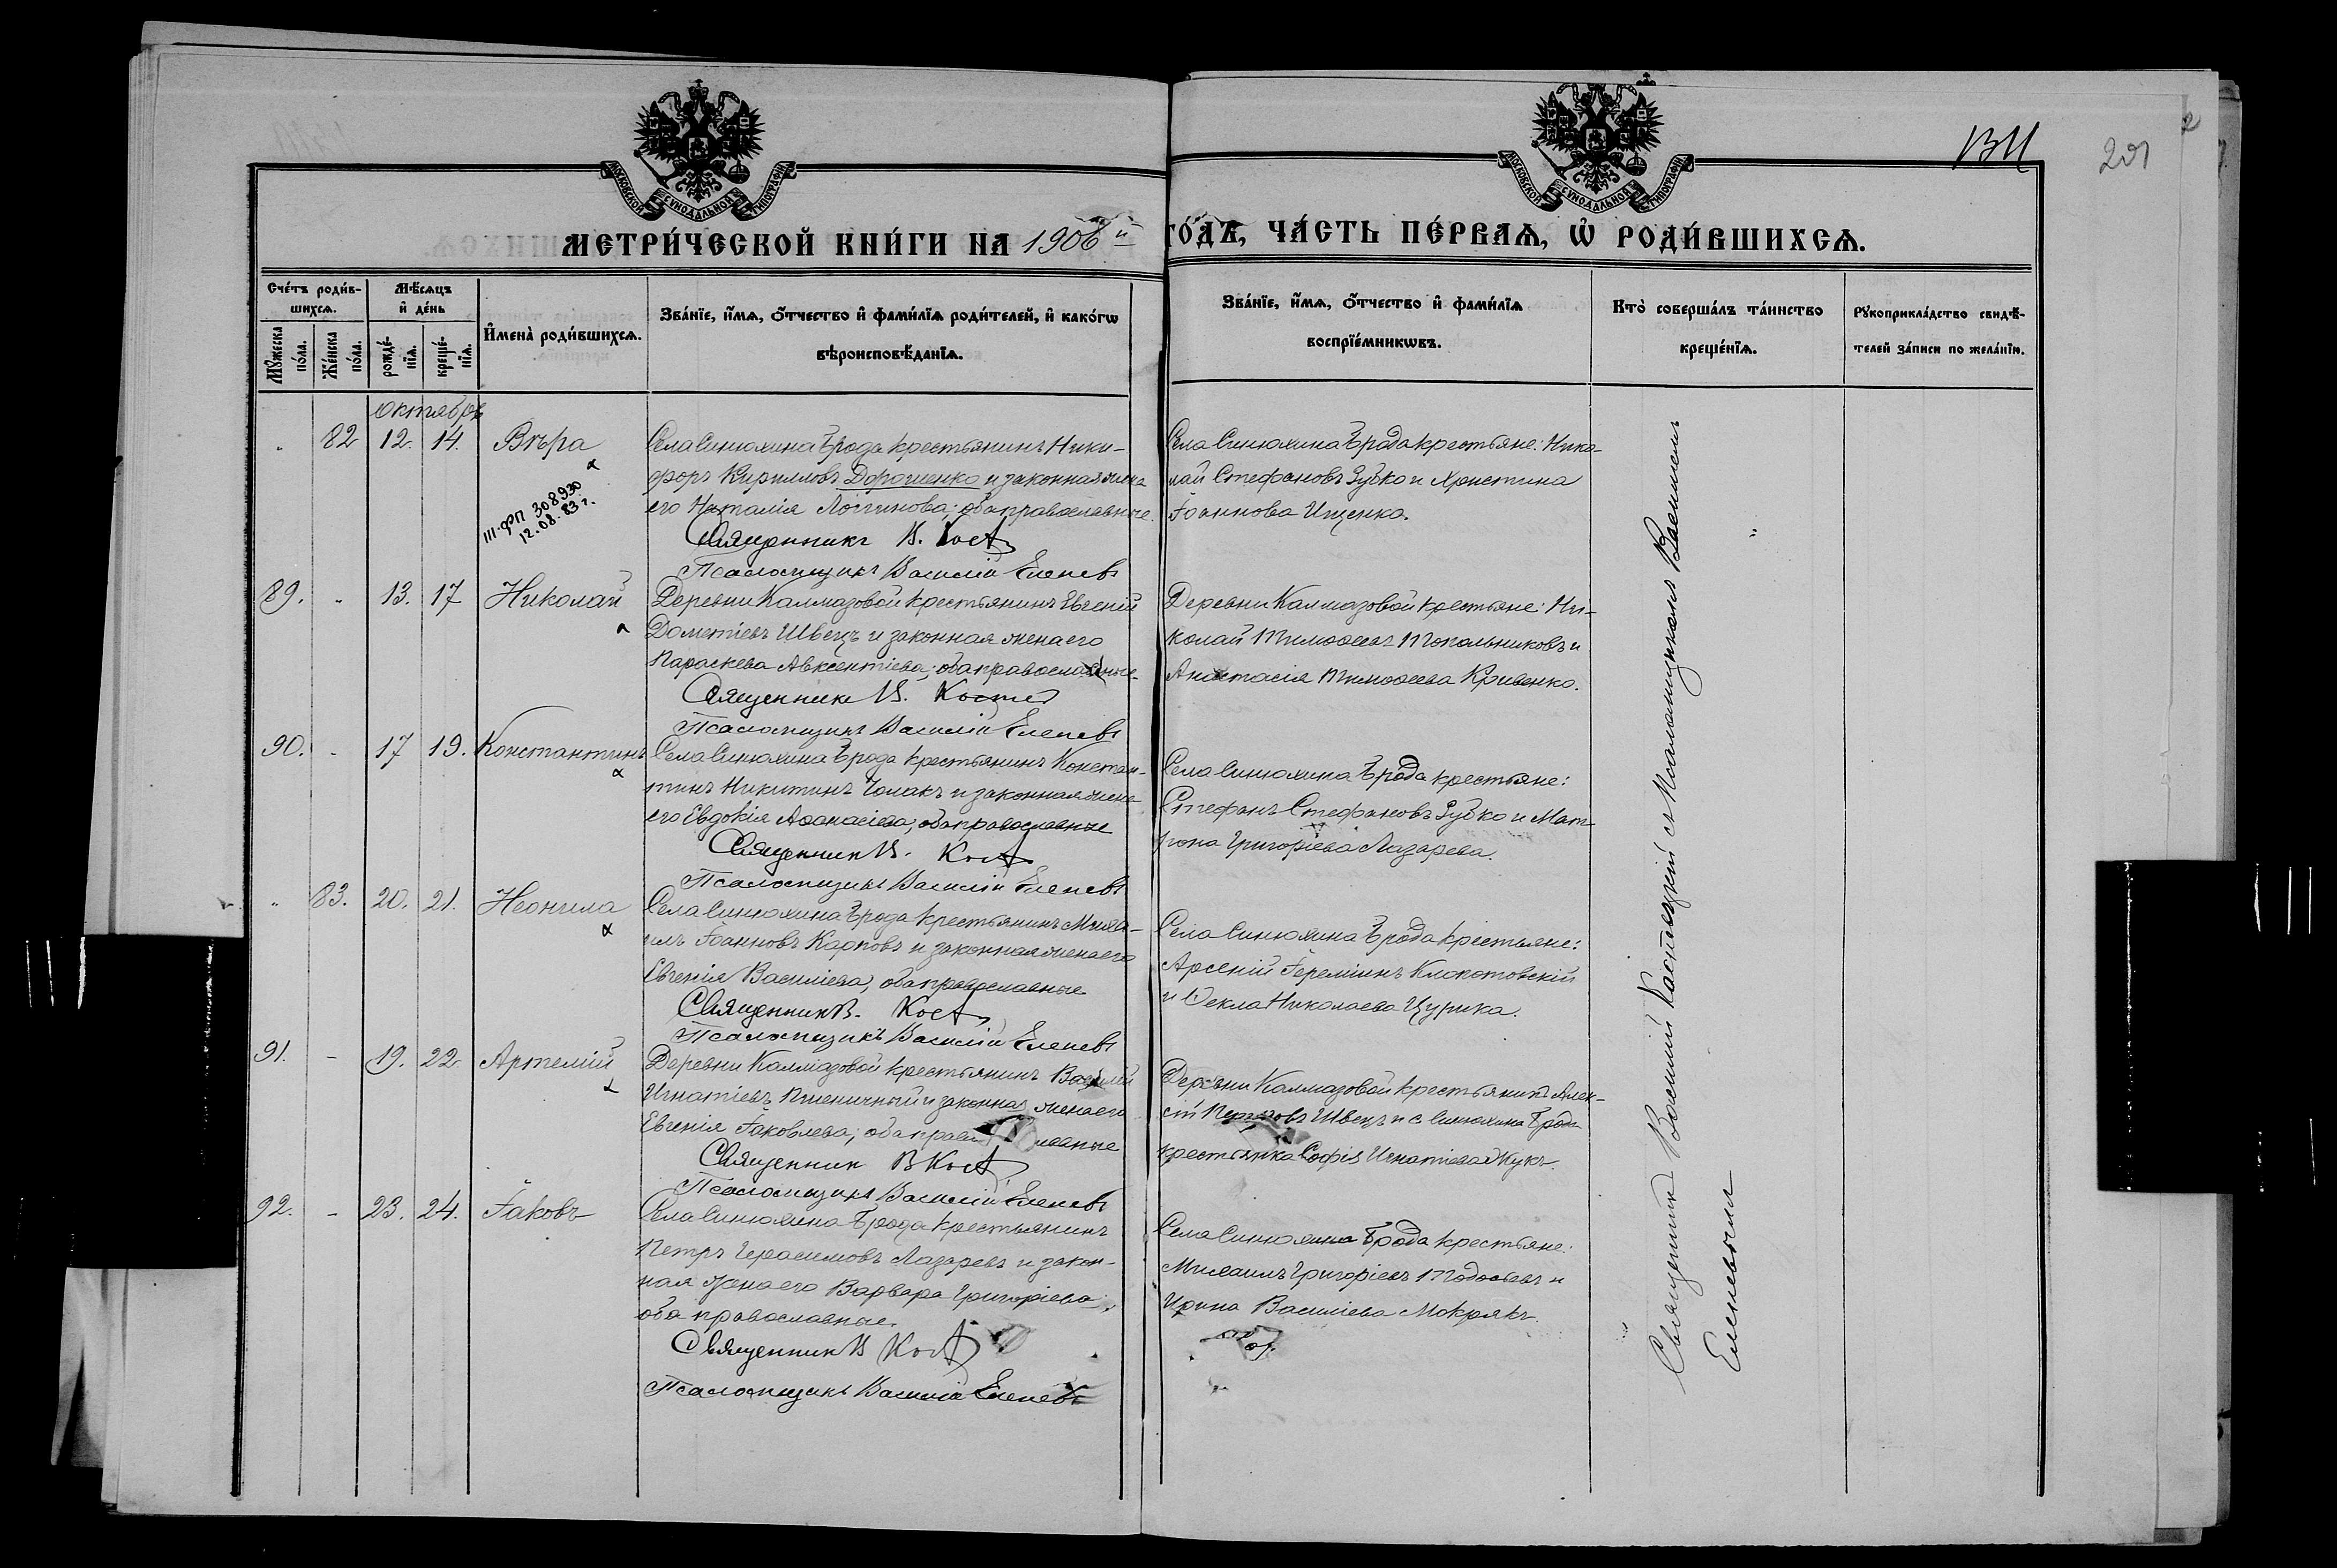 МОСКОВСКОЙ СУНОДАЛЬНОЙ ТИПОГРАФІИ
МОСКОВСКОЙ СУНОДАЛЬНОЙ ТИПОГРАФІИ
201
МЕТРИ́ЧЕСКОЙ КНИ́ГИ НА 1906й ГО́ДЪ, ЧА́СТЬ ПЕ́РВАѦ, Ѡ҆ РОДИ́ВШИХСѦ.
Сче́тъ роди́в-
шихсѧ.
Мꙋ́жеска по́ла.
Же́нска по́ла.
Мѣ́сѧцъ
и҆ де́нь
рожде́-
нїѧ.
креще́-
нїѧ.
И҆мена̀ роди́вшихсѧ.
Зва́нїе, и҆́мѧ, ѻ҆́тчество и҆ фами́лїѧ роди́телей, и҆ како́гѡ
вѣроисповѣ́данїѧ.
Зва́нїе, и҆́мѧ, ѻ҆́тчество и҆ фами́лїѧ
воспрїе́мникѡвъ.
Кто̀ соверша́лъ та́инство
креще́нїѧ.
Рꙋкоприкла́дство свидѣ́-
телей за́писи по жела́нїю.
Октябрь
„ 82 12. 14. Вѣра
III-ФП 308930
12.08.83 г.
Села Синюхина Брода крестьянинъ Ники-
форъ Кирилловъ Дорошенко и законная жена
его Наталія Логгинова; оба православные.
Священникъ В. Кост
Псаломщикъ Василій Еленевъ
Села Синюхина Брода крестьяне: Нико-
лай Стефановъ Зубко и Христина
Іоаннова Ищенко.
89. „ 13. 17 Николай
Деревни Калмазовой крестьянинъ Евгеній
Дометіевъ Швецъ и законная жена его
Параскева Авксентіева; оба православные.
Священникъ В. Косте
Псаломщикъ Василій Еленевъ
Деревни Калмазовой крестьяне: Ни-
колай Тимоѳеевъ Топольниковъ и
Анастасія Тимоѳеева Кривенко.
90. - 17 19. Константинъ
Села Синюхина Брода крестьянинъ Констан-
тинъ Никитинъ Чолакъ и законная жена
его Евдокія Аѳанасіева, оба православные
Священникъ В. Кост
Псаломщикъ Василій Еленевъ
Села Синюхина Брода крестьяне:
Стефанъ Стефановъ Зубко и Мат-
рона Григоріева Лазарева.
„ 83. 20. 21. Неонила
Села Синюхина Брода крестьянинъ Миха-
илъ Іоанновъ Карповъ и законная жена его
Евгенія Василіева, оба православные
Священникъ В. Кост
Псаломщикъ Василій Еленевъ
Села Синюхина Брода крестьяне:
Арсеній Іереміинъ Клопотовскій
и Ѳекла Николаева Цурика.
91. - 19. 22 Артемій
Деревни Калмазовой крестьянинъ Василій
Игнатіевъ Пшеничный и законная жена его
Евгенія Іаковлева; оба православные
Священникъ В Кост
Псаломщикъ Василій Еленевъ
Деревни Калмазовой крестьянинъ Алек-
сій Петровъ Швецъ и с Синюхина Брода
крестьянка Софія Игнатіева Жукъ.
92. - 23. 24. Іаковъ
Села Синюхина Брода крестьянинъ
Петръ Герасимовъ Лазаревъ и закон-
ная жена его Варвара Григоріева;
оба православные.
Священникъ В Кост
Псаломщикъ Василій Еленевъ
Села Синюхина Брода крестьяне:
Михаилъ Григоріевъ Тодосьевъ и
Ирина Василіева Мокрякъ.
Священникъ Василій Костецкій съ Псаломщикомъ Василіемъ
Еленевымъ